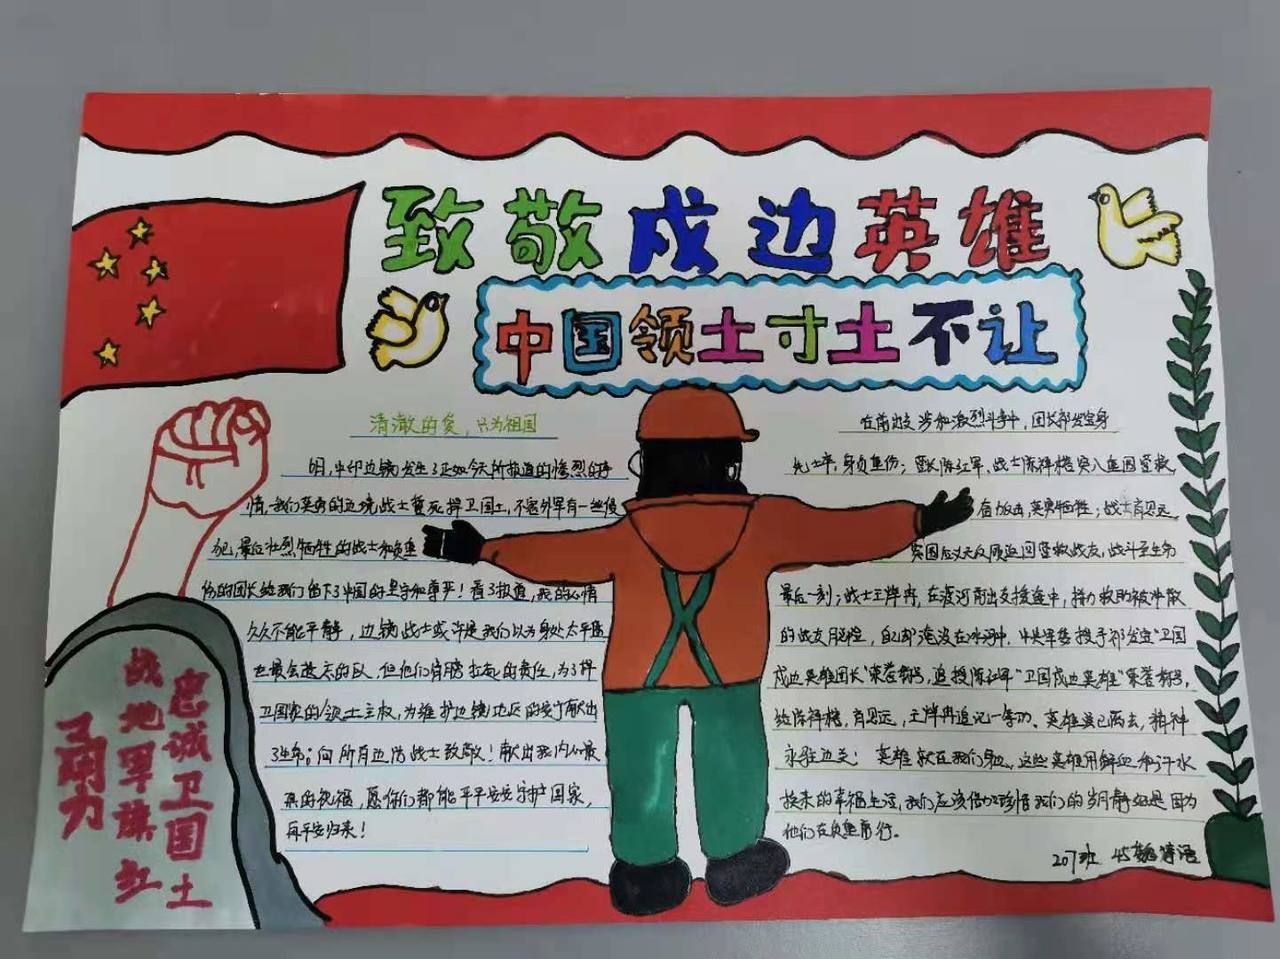 致敬戍边英雄
中国领土寸土不让
清澈的爱，只为祖国
日，中印边境发生了正如今天所报道的惨烈的事
情，我们英勇的边境战士誓死捍卫国土，不容外军有一丝侵
犯，最后壮烈牺牲的战士和负重
伤的团长给我们留下了中国的坚守和尊严！看了报道，我的心情
久久不能平静，边境战士或许是我们以为身处太平盛
也最会遗忘的队，但他们肩膀扛起的责任，为了捍
卫国家的领土主权，为维护边境地区的安宁献出
了生命；向所有边防战士致敬！献出我内心最
真的祝福，愿你们都能平平安安守护国家，
再平安归来！
在前出交涉和激烈斗争中，团长祁发宝身
先士卒，身负重伤；营长陈红军、战士陈祥榕突入重围营救，
奋力反击，英勇牺牲；战士肖思远，
突围后义无反顾返回营救战友，战斗至生命
最后一刻；战士王焯冉，在渡河前出支援途中，拼力救助被冲散
的战友脱险，自己却淹没在冰河中，中央军委授予祁发宝"卫国
戍边英雄团长"荣誉称号，追授陈红军"卫国戍边英雄"荣誉称号，
给陈祥榕、肖思远、王焯冉追记一等功、英雄虽已离去，精神
永驻边关； 英雄就在我们身边，这些英雄用鲜血和汗水
换来的幸福生活，我们应该倍加珍惜我们的岁月静好是因为
他们在负重前行。
207班 45魏诗语
忠诚卫国土
战地军旗红